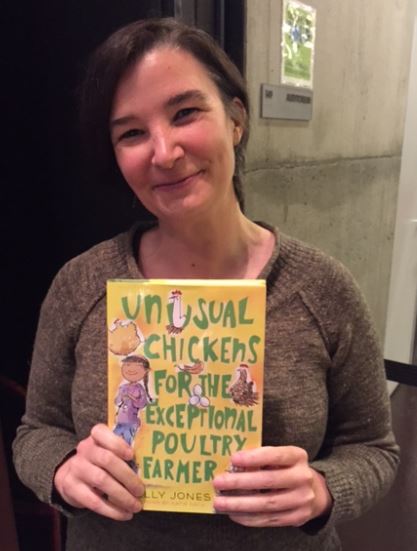 AUDITORIUM
UNUSUAL
CHICKENS
FOR THE
EXCEPTIONAL
POULTRY
FARMER
LLY JONES